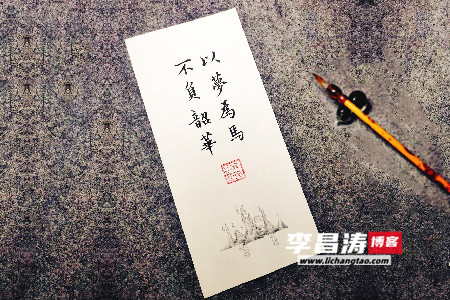 以夢為馬
不負韶華
李昌涛博客
www.lichangtao.com